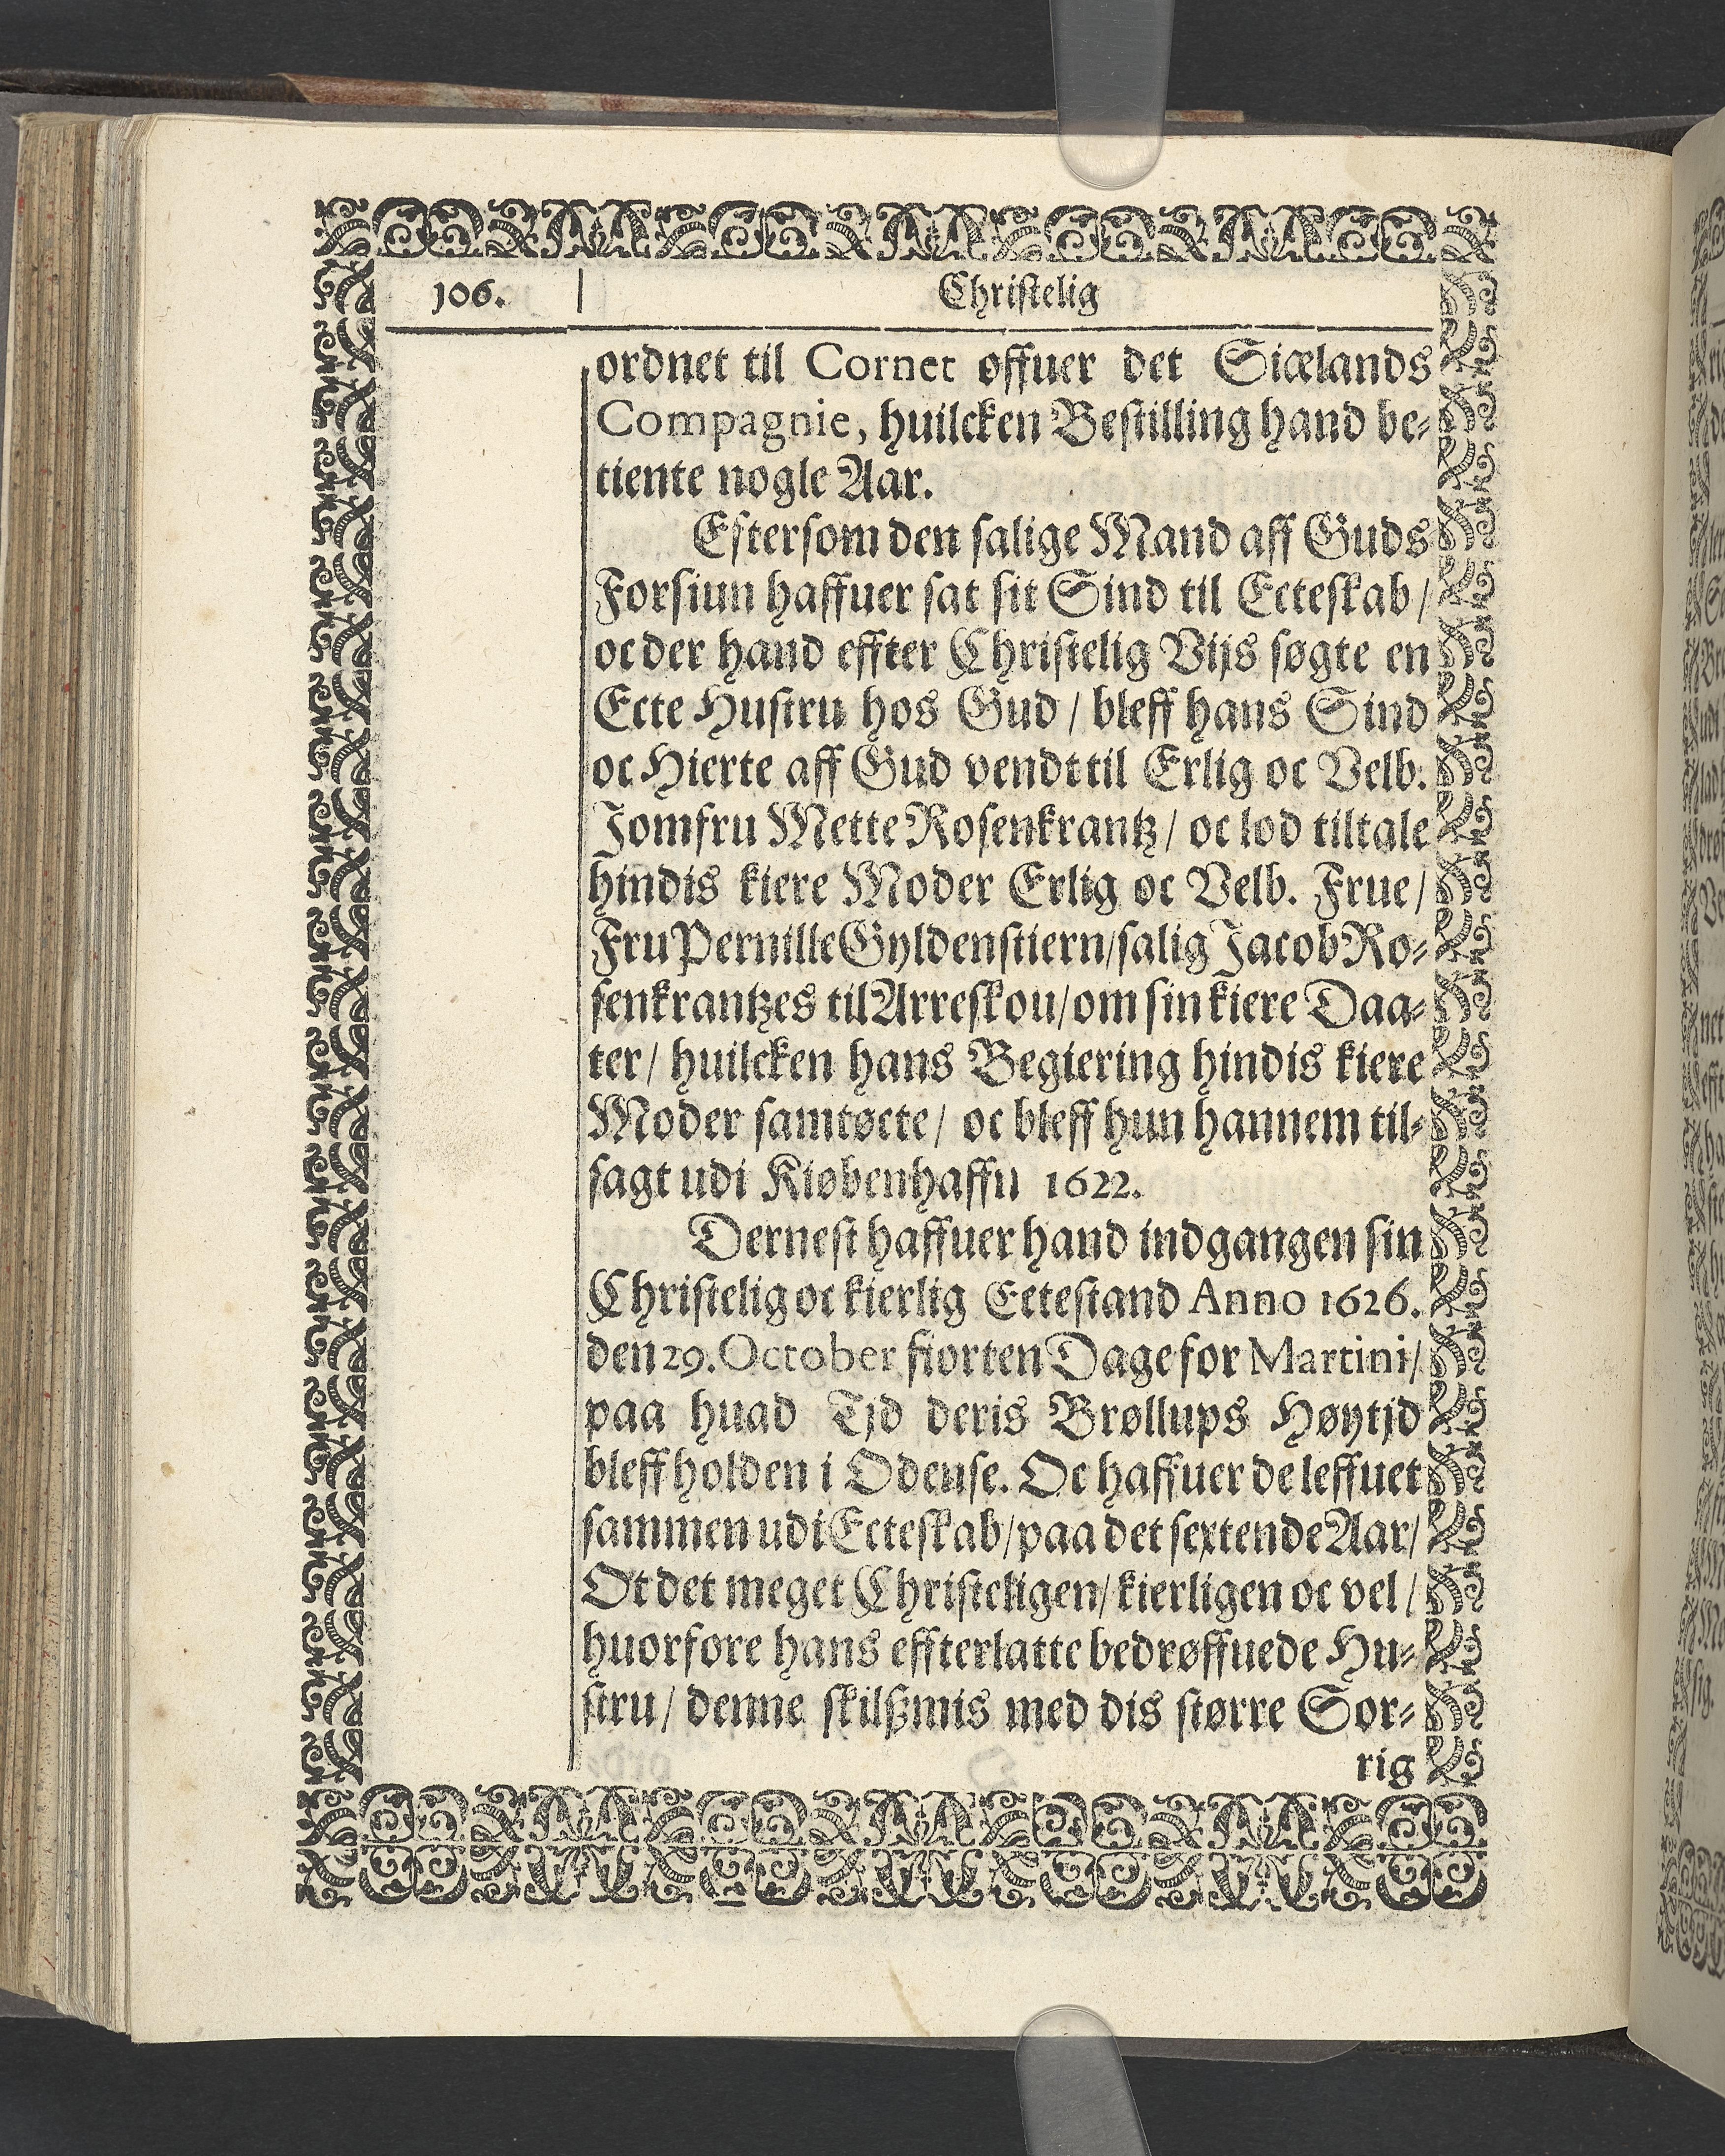 106.
Christelig
ordnet til Cornet offuer det Siælands
Compagnie, huilcken Bestilling hand be-
tiente nogle Aar.
Eftersom den salige Mand aff Guds
Forsiun haffuer sat sit Sind til Ecteskab /
oc der hand effter Christelig Vijs søgte en
Ecte Hustru hos Gud / bleff hans Sind
oc Hierte aff Gud vendt til Erlig oc Velb.
Jomfru Mette Rosenkrantz / oc lod tiltale
hindis kiere Moder Erlig oc Velb. Frue /
Fru Pernille Gyldenstiern / salig Jacob Ro-
senkrantzes til Arreskou / om sin kiere Daa-
ter / huilcken hans Begiering hindis kiere
Moder samtøcte / oc bleff hun hannem til-
sagt udi Kiøbenhaffn 1622.
Dernest haffuer hand indgangen sin
Christelig oc kierlig Ectestand Anno 1626.
den 29. October fiorten Dage for Martini /
paa huad Tjd deris Brøllups Høytjd
bleff holden i Odense. Oc haffuer de leffuet
sammen udi Ecteskab / paa det sextende Aar /
Ot det meget Christeligen / kierligen oc vel /
huorfore hans effterlatte bedrøffuede Hu-
stru / denne skilßmis med dis større Sor-
rig